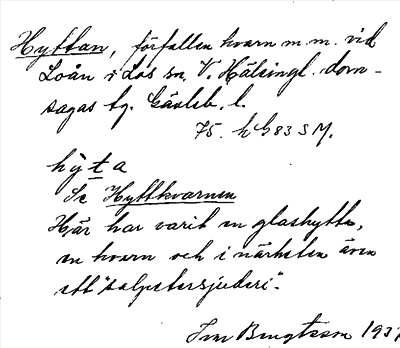 Hyttan, förfallen kvarn m.m. vid
Loån i Los sn. V. Hälsingl. dom-
sagas tg. Gävleb. l.
75. h G 83 S M.
hỳta
Se Hyttkvarnen
Här har varit en glashytta,
en kvarn och i närheten även
ett "salpetersjuderi".
Bengtsson 1937